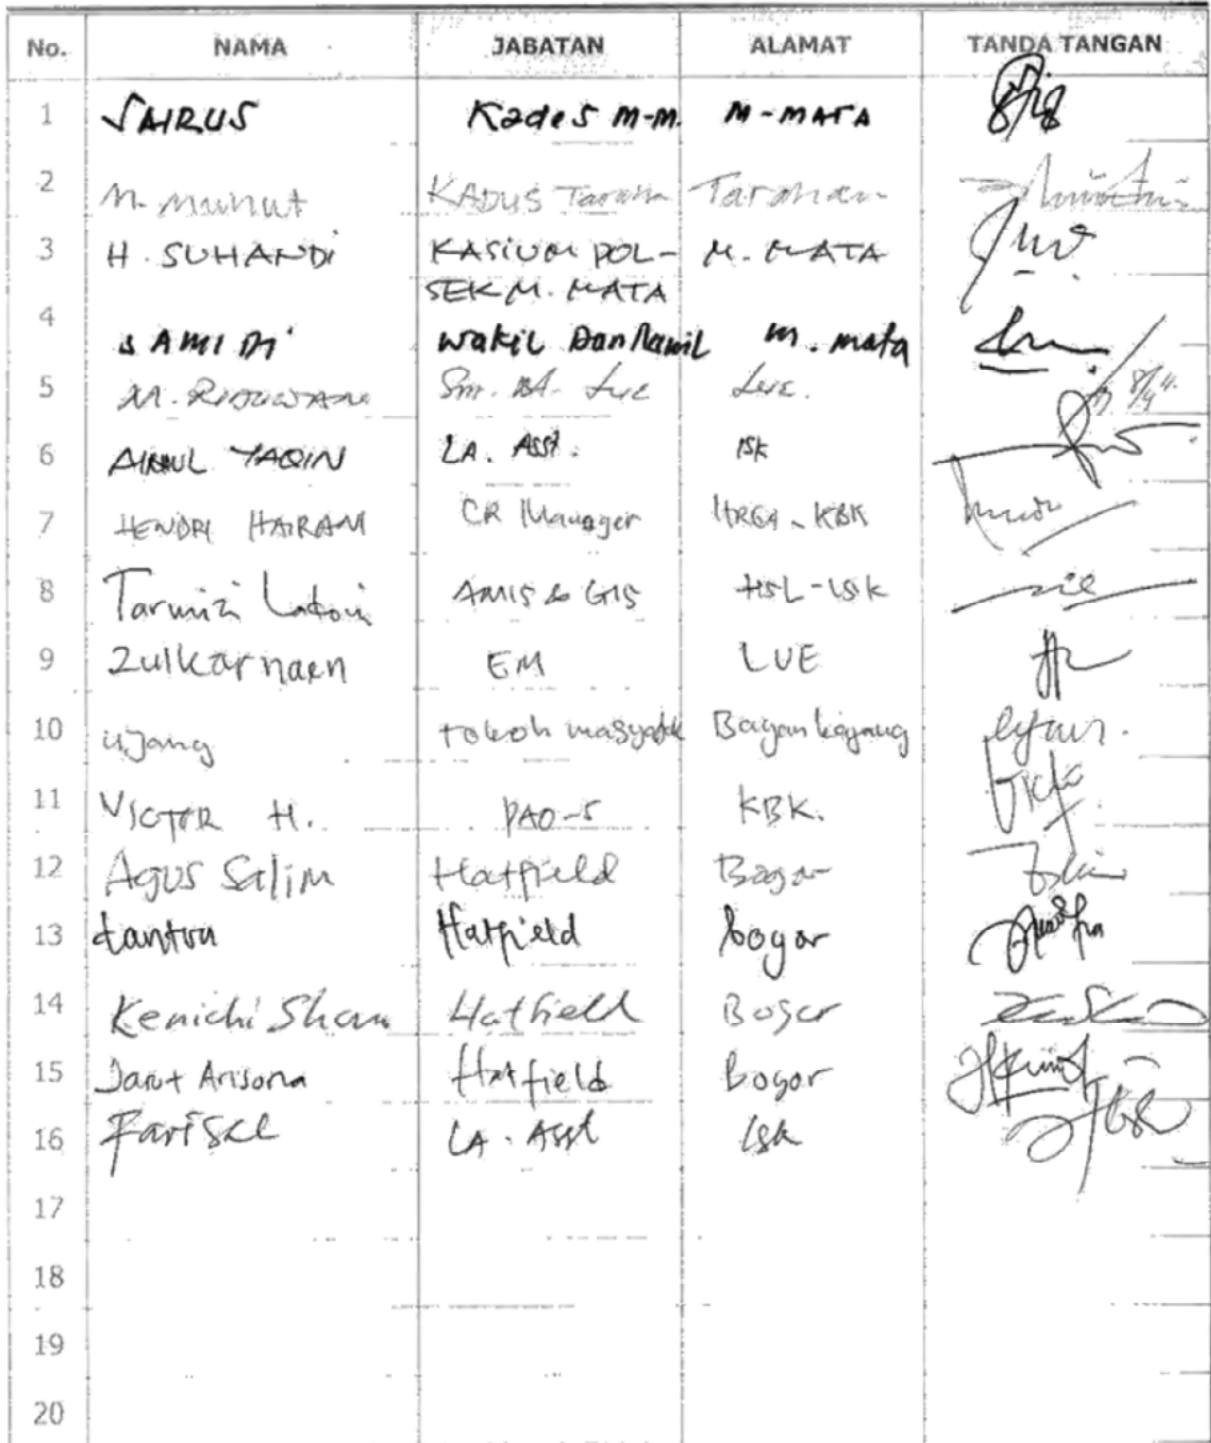 No. NAMA JABATAN ALAMAT TANDA TANGAN
1 SAIRUS Kades M-M. M-MATA
2 M. Munut KADUS Tarahan
3 H. SUHANDi KASIUM POL- M. MATA
SEK M. MATA
4 SAMIDI wakil DanRamil m. mata
5 M. RIDUWAN Sm. Lue.
6 AINUL YAQIN LA. Asst. ISK
7 HENDRI HAIRAM CR Manager HRGA - KBK
8 Tarmizi AMIS & GIS HSL-ISK
9 Zulkarnaen EM LUE
10 Ujang tokoh Bagan
11 VICTOR H. PAO-5 KBK.
12 Agus Salim Hatfield Bogor
13 tantra Hatfield bogor
14 Kenichi Shan Hatfield Bogor
15 Arisona Hatfield Bogor
16 LA. Asst Isk
17
18
19
20